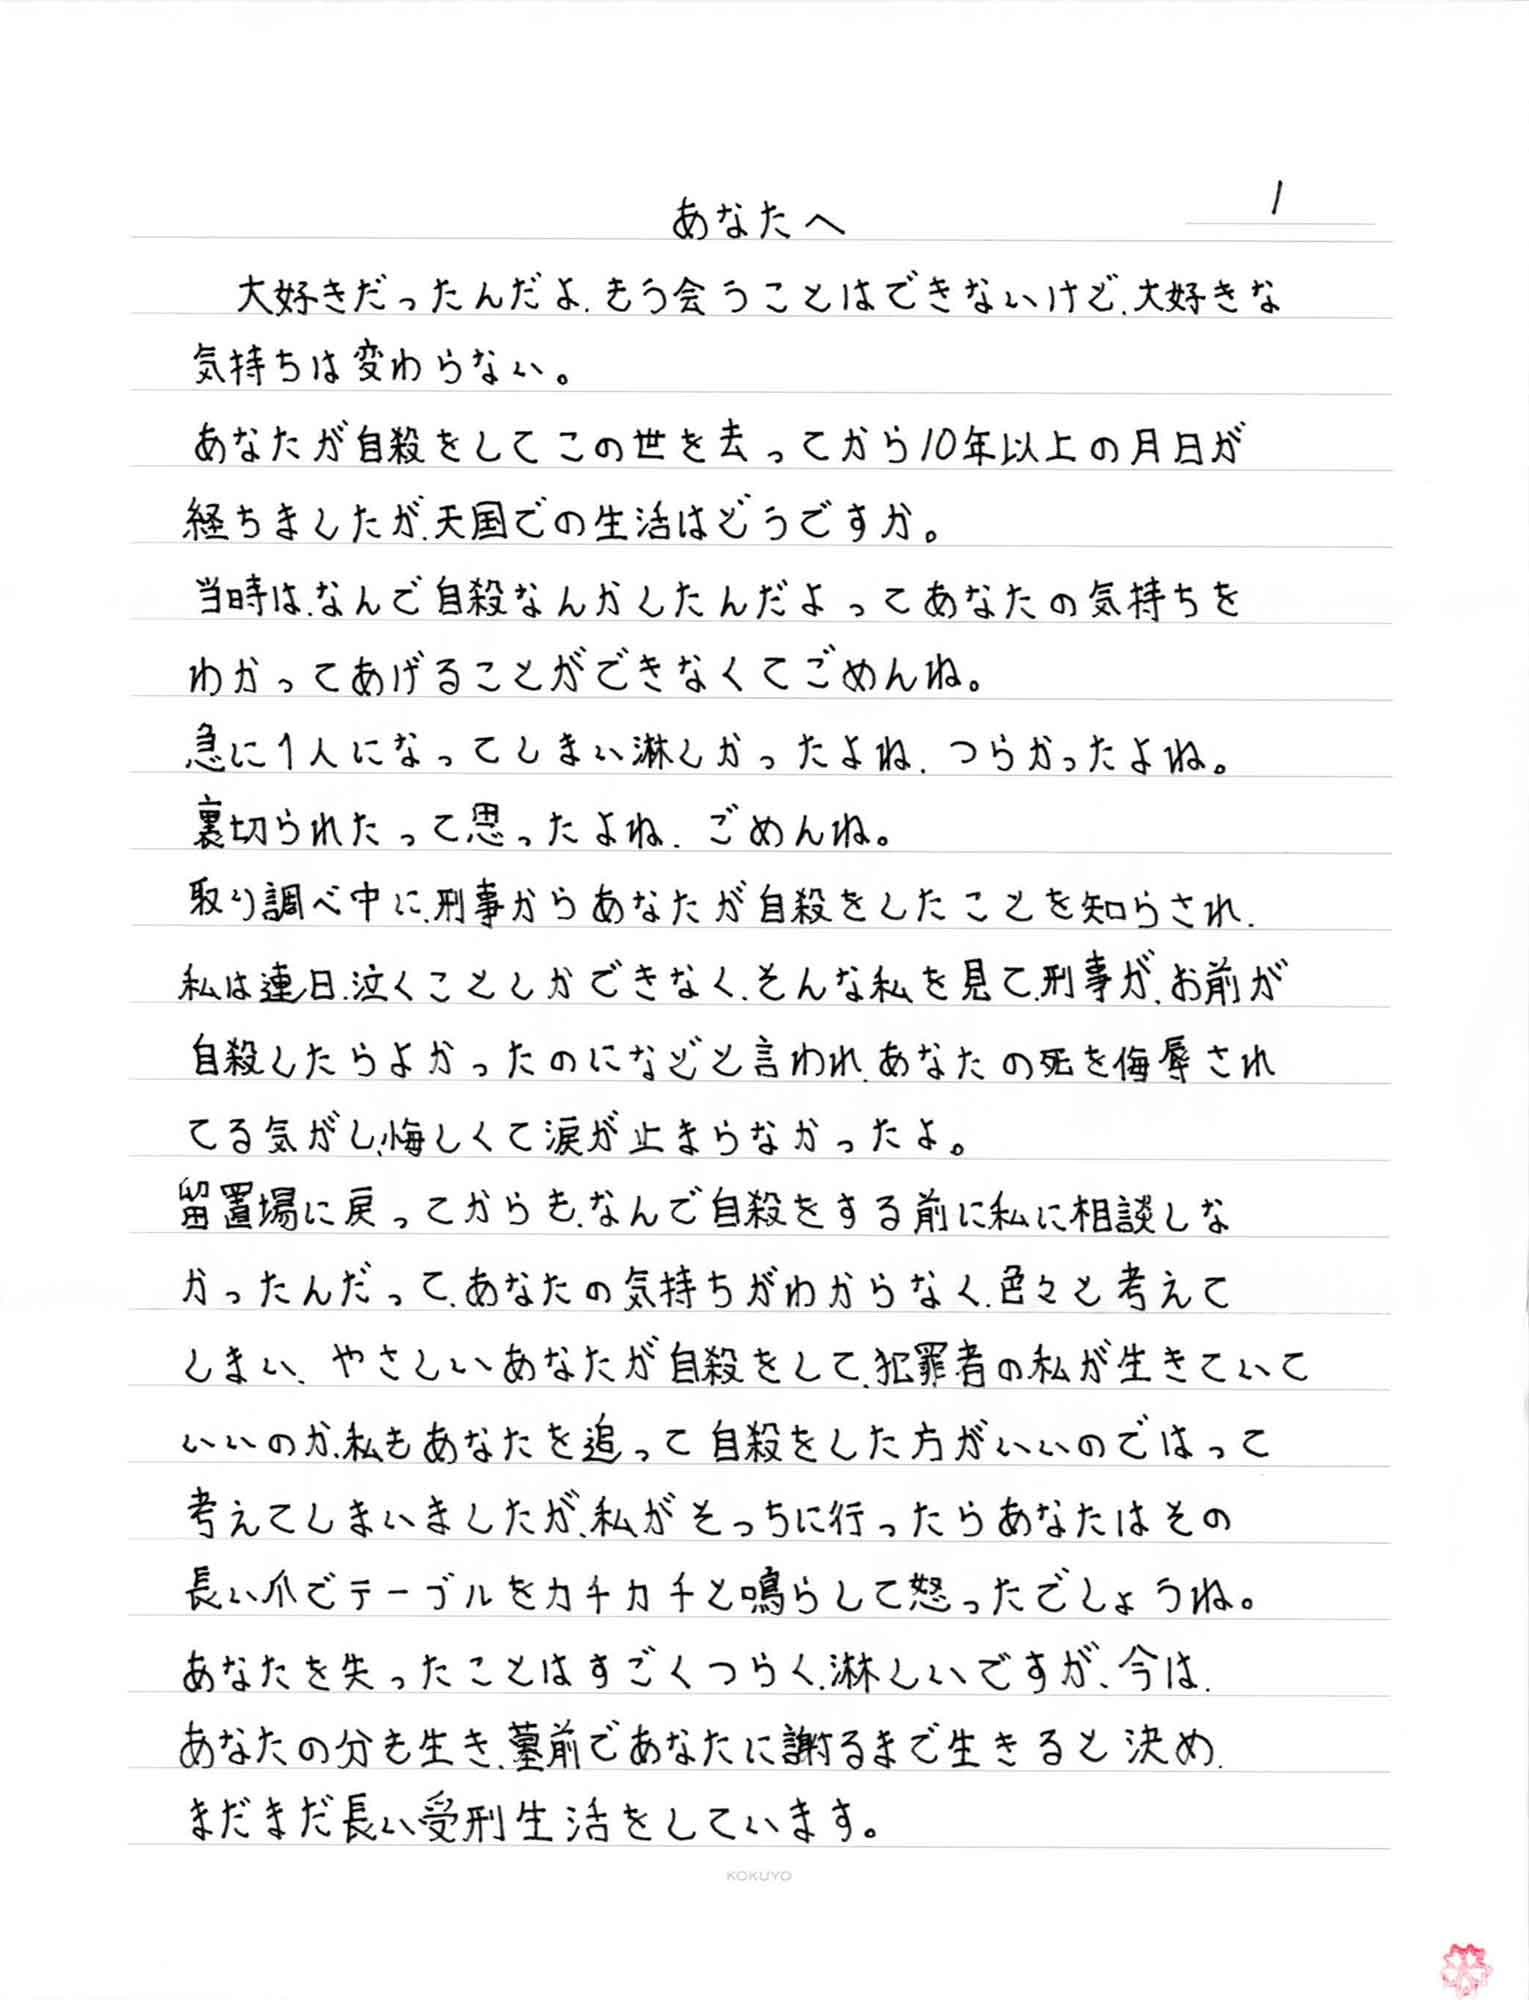 1
あなたへ
大好きだったんだよ、もう会うことはできないけど、大好きな
気持ちは変わらない。
あなたが自殺をしてこの世を去ってから10年以上の月日が
経ちましたが、天国での生活はどうですか。
当時は、なんで自殺なんかしたんだよってあなたの気持ちを
わかってあげることができなくてごめんね。
急に1人になってしまい淋しかったよね、つらかったよね。
裏切られたって思ったよね、ごめんね。
取り調べ中に、刑事からあなたが自殺をしたことを知らされ、
私は連日、泣くことしかできなく、そんな私を見て、刑事が、お前が
自殺したらよかったのになどと言われ、あなたの死を侮辱され
てる気がし、悔しくて涙が止まらなかったよ。
留置場に戻ってからも、なんで自殺をする前に私に相談しな
かったんだって、あなたの気持ちがわからなく、色々と考えて
しまい、やさしいあなたが自殺をして、犯罪者の私が生きていて
いいのか、私もあなたを追って自殺をした方がいいのではって
考えてしまいましたが、私がそっちに行ったらあなたはその
長い爪でテーブルをカチカチと鳴らして怒ったでしょうね。
あなたを失ったことはすごくつらく、淋しいですが、今は、
あなたの分も生き、墓前であなたに謝るまで生きると決め、
まだまだ長い受刑生活をしています。
KOKUYO